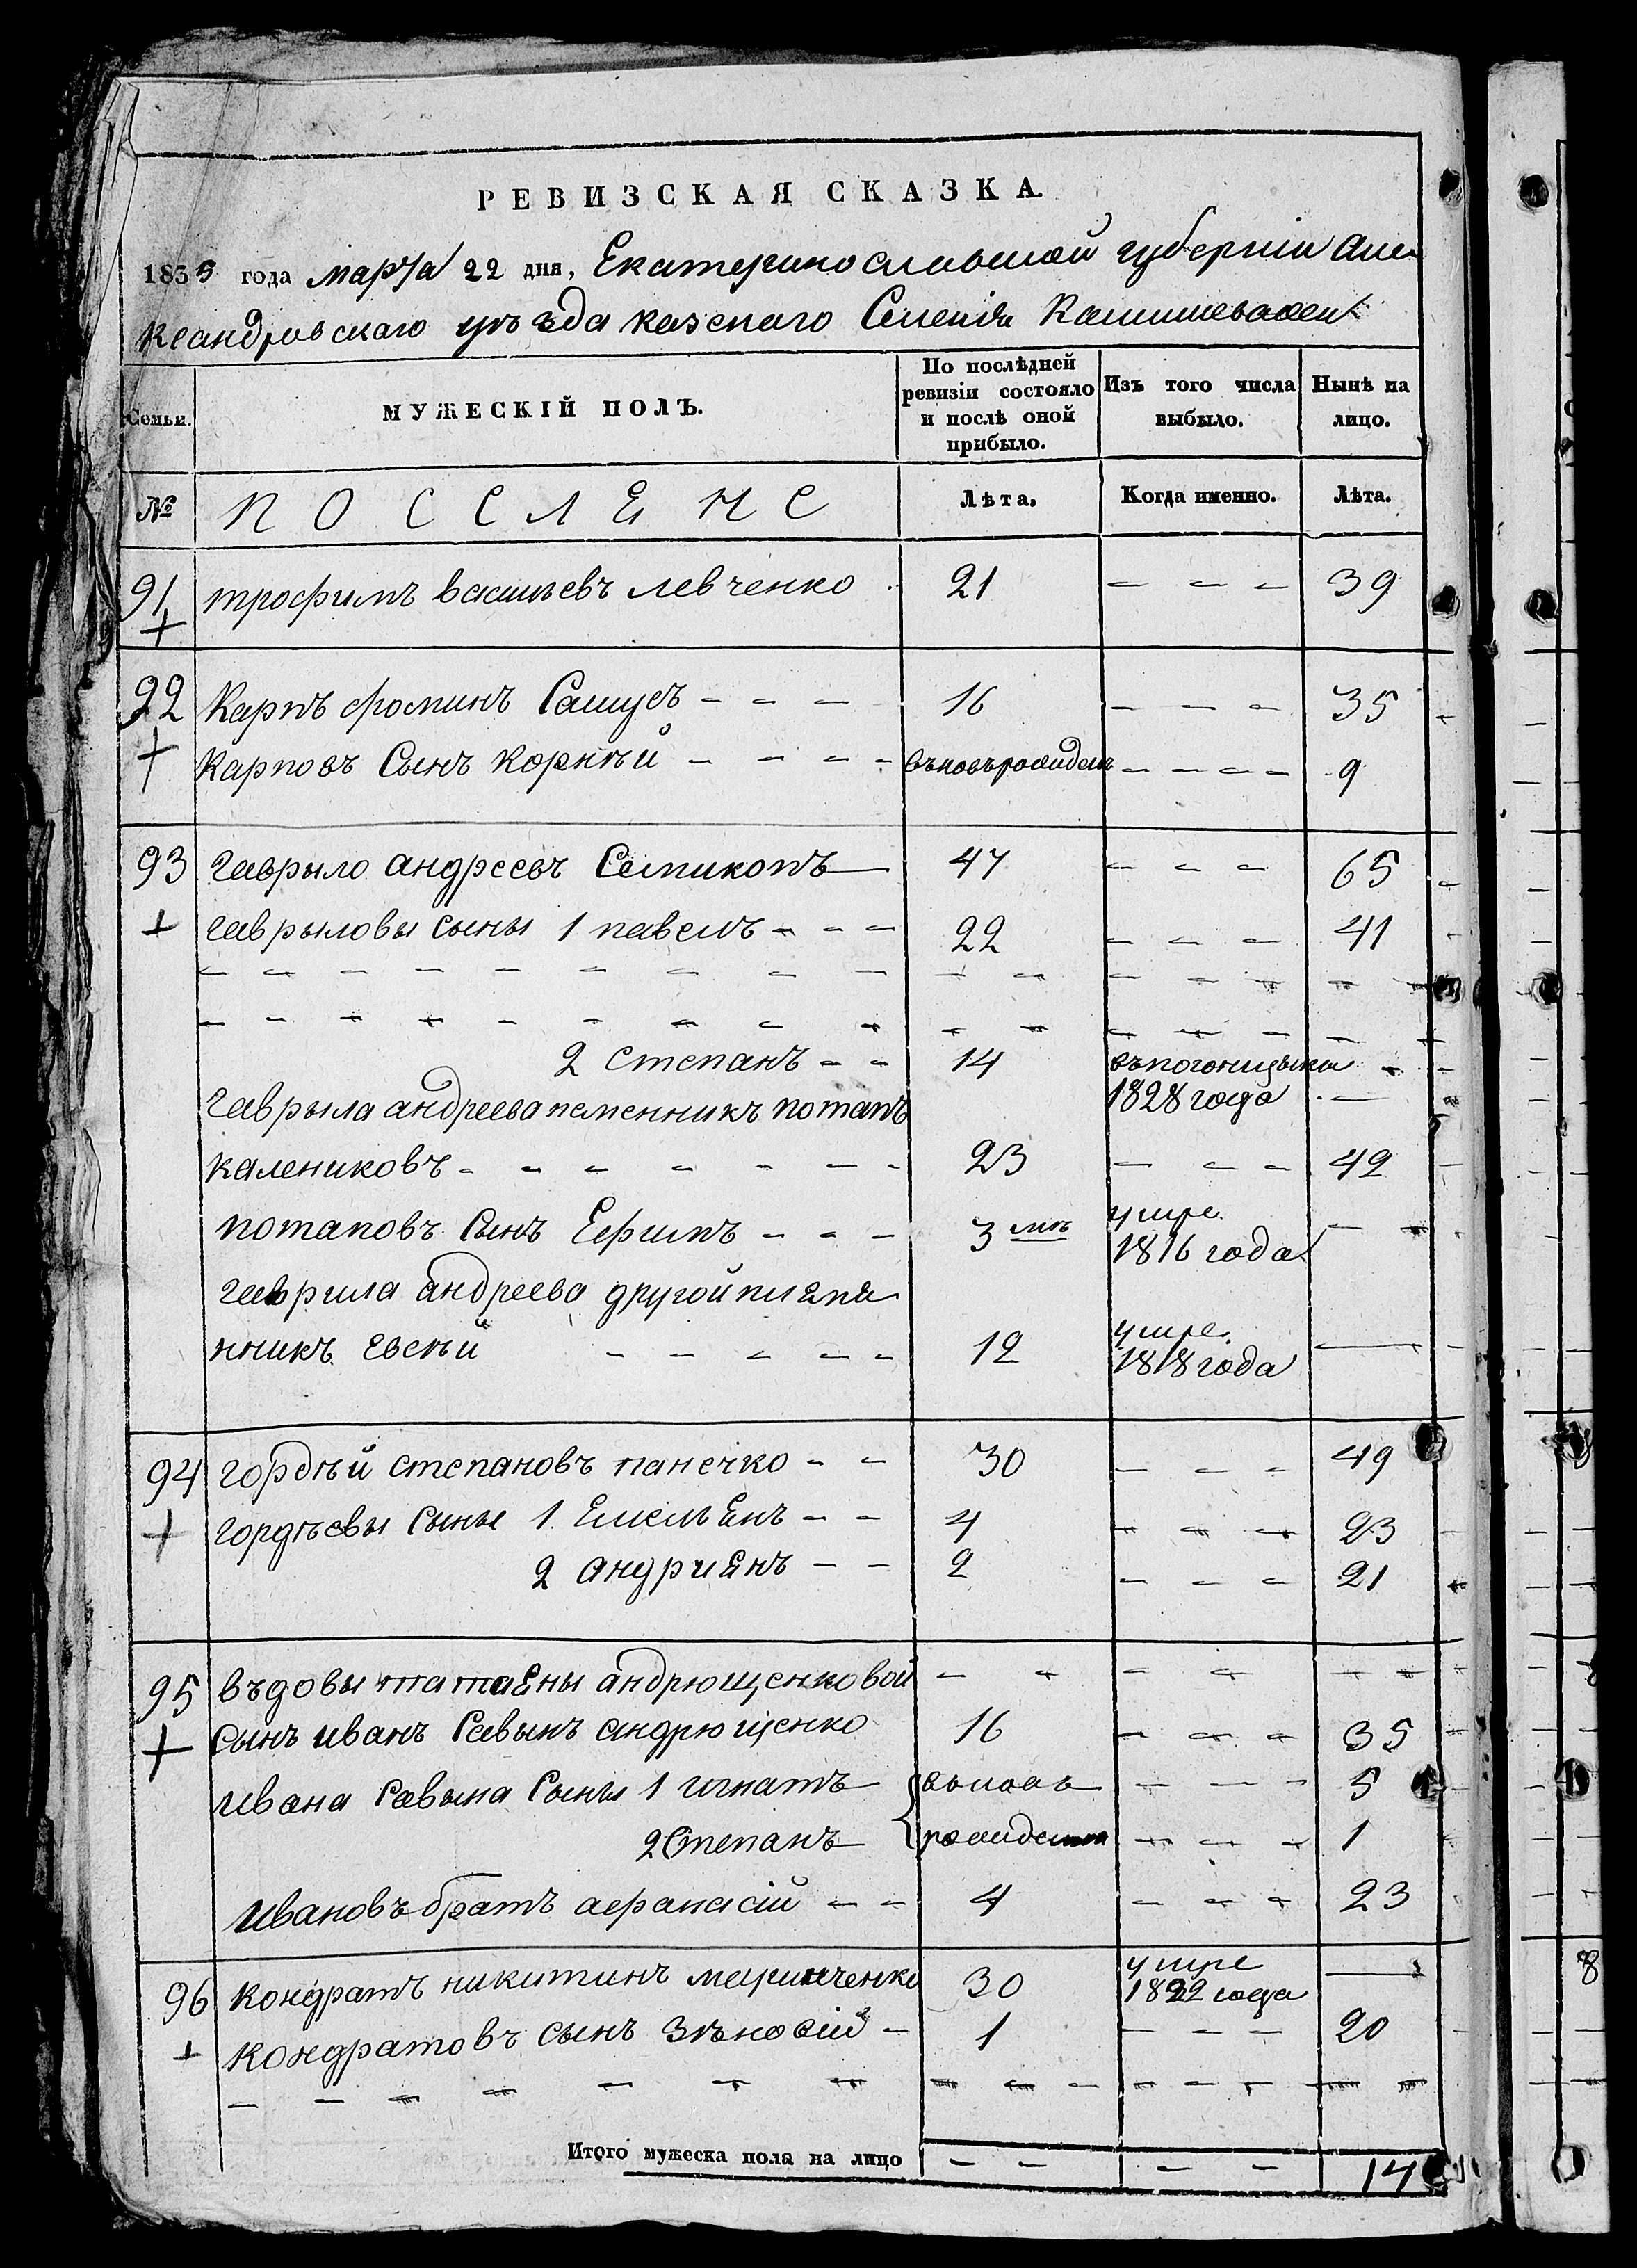 РЕВИЗСКАЯ СКАЗКА.
1835 года марта 22 дня, Екатеринославской губернiи Алек
ксандровскаго уѣзда казенаго Селенiя
Семьи. МУЖЕСКIЙ ПОЛЪ. По послѣдней ревизiи состояло и послѣ оной прибыло. Изъ того числа выбыло. Нынѣ на лицо.
№ ПОССЛЕНЕ Лѣта. Когда именно. Лѣта.
91 трофимъ васильевъ левченко 21 - - - 39
92 Карпъ фоминъ - - - 16 - - - 35
Карповъ Сынъ Корнѣй - - - - въновърожденъ - - - - 9
93 гаврыло андреевъ Семикопъ 47 - - - 65
гаврыловы сыны 1 павелъ - - - 22 - - - 41
2 степанъ - - 14 въпогонщыки
1828 года
гаврыла андреева племенникъ потапъ
калениковъ - - - - - - - 23 - - - 42
потаповъ Сынъ Ефимъ - - - 3 мѣ умре
1816 года
гаврила андреева другой племя
нникъ Евсѣй - - - - - 12 умре
1818 года
94 гордѣй степановъ панечко - - 30 - - - 49
гордѣевы Сыны 1 Емельенъ - - 4 - - - 23
2 андриенъ - - 2 - - - 21
95 въдовы татаены андрющенковой - - - - - -
Сынъ иванъ Савынъ андрющенко 16 - - - 35
ивана Савына Сыны 1 игнатъ вьновь - - - 5
2 Степанъ рожденыя - - - 1
ивановъ братъ афанасiй - - 4 - - - 23
96 кондратъ никитинъ маринченко 30 умре
1822 года
кондратовъ сынъ Зѣновiй - 1 - - - 20
Итого мужеска пола на лицо - - - - 14
8